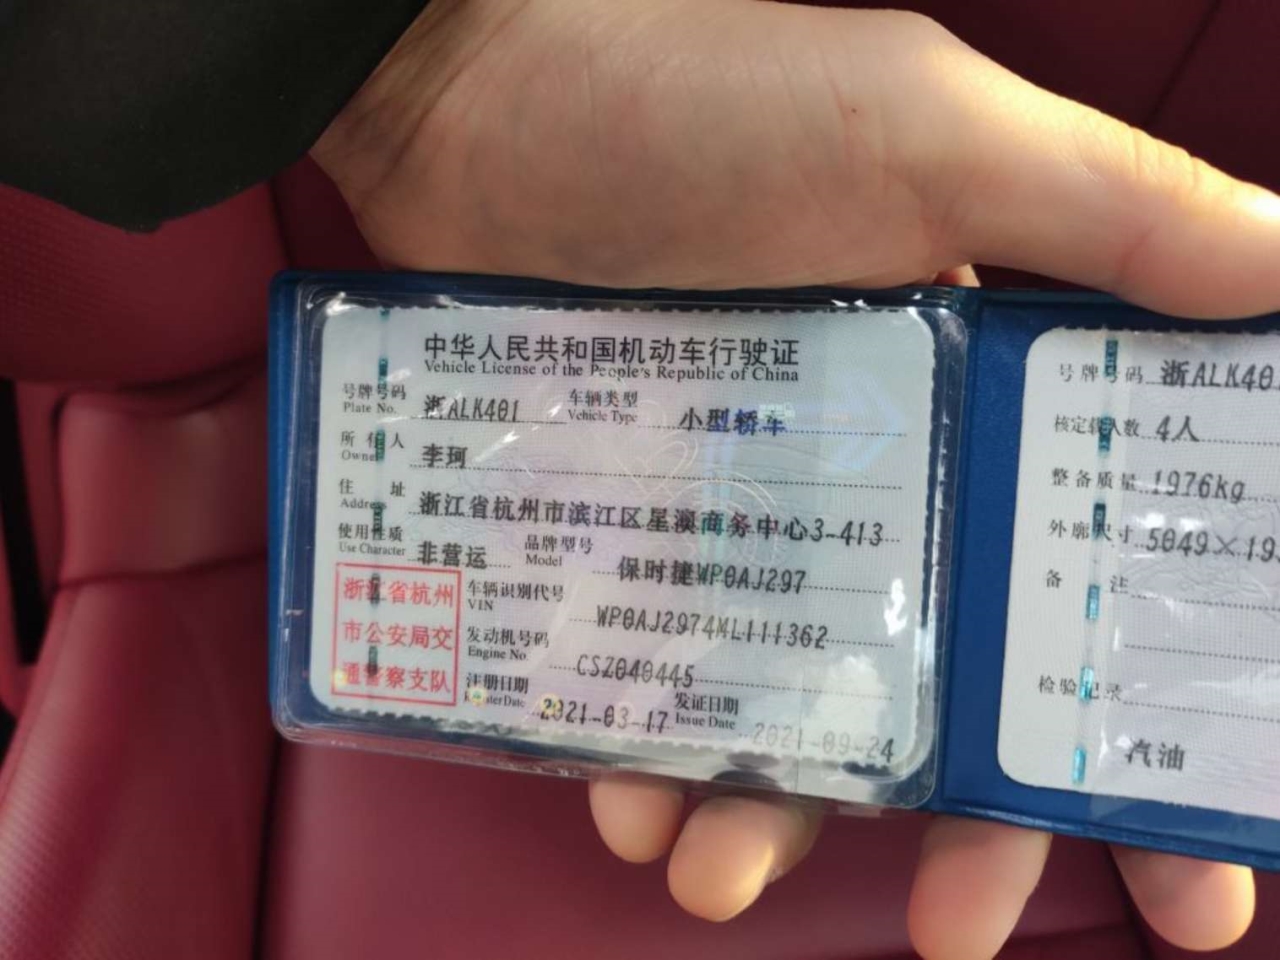 中华人民共和国机动车行驶证
Vehicle License of the People's Republic of China
号牌号码 浙ALK401 车辆类型 小型轿车
Plate No. Vehicle Type
所有人 李珂
Owner
住址 浙江省杭州市滨江区星澳商务中心3-413
Address
使用性质 非营运 品牌型号 保时捷WP0AJ297
Use Character Model
浙江省杭州
市公安局交
通警察支队
车辆识别代号 WP0AJ2974ML111362
VIN
发动机号码 CSZ040445
Engine No.
注册日期 2021-03-17 发证日期 2021-09-24
Register Date Issue Date
号牌号码 浙ALK40
核定载人数 4人
整备质量 1976kg
外廓尺寸 5049×19
备注
检验记录
汽油